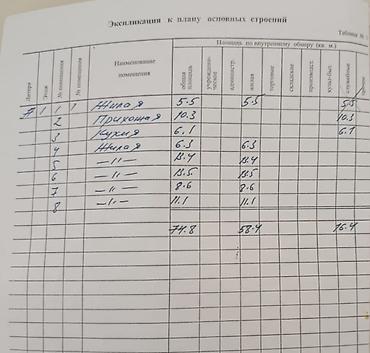 Экспликация к плану основных строений
Таблица №
Площадь по внутреннему обмеру (кв. м.)
Литера Этаж № помещения № помещения Наименование помещения общая площадь учрежденческое администр. жилая торговые складские производст. культ-быт. служебные прочие
А 1 1 1 Жилая 5.5 5.5 5.5
2 Прихожая 10.3 10.3
3 Кухня 6.1 6.1
4 Жилая 6.3 6.3
5 —"—
6 —"—
7 —"— 8.6 8.6
8 —"— 11.1 11.1
74.8 58.4 16.4